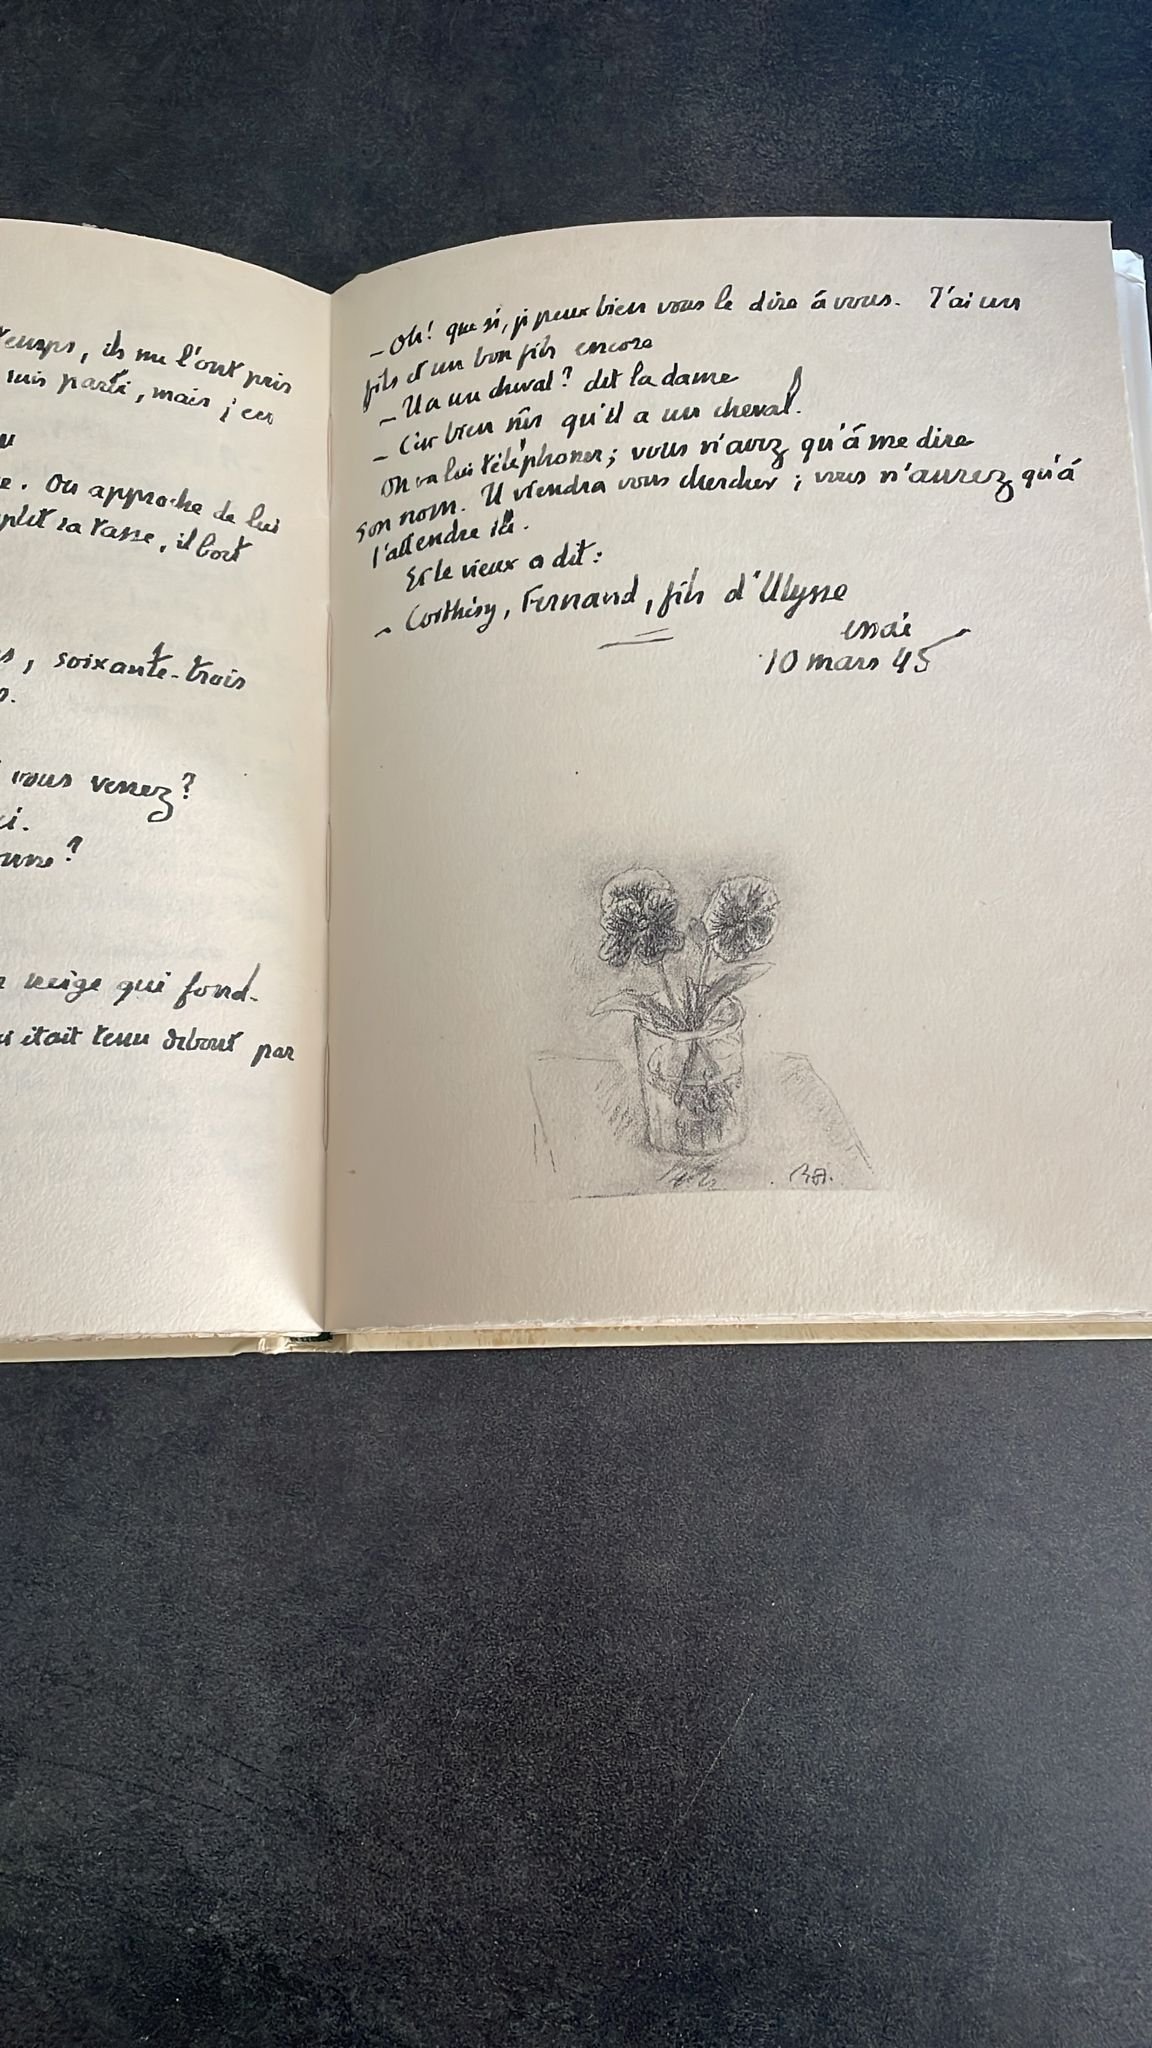 temps, ils me l'ont pris
suis parti, mais j'en
e. On approche de lui
sa tasse, il boit
, soixante-trois
vous venez?
ci.
neige qui fond.
était tenu debout par
- Oh! que si, je peux bien vous le dire à vous. J'ai un
fils et un bon fils encore
- Il a un cheval? dit la dame
- C'est bien sûr qu'il a un cheval.
On va lui téléphoner; vous n'avez qu'à me dire
son nom. Il viendra vous chercher; vous n'aurez qu'à
l'attendre ici.
Et le vieux a dit:
- Corthésy, Fernand, fils d'Ulysse
essai
10 mars 45